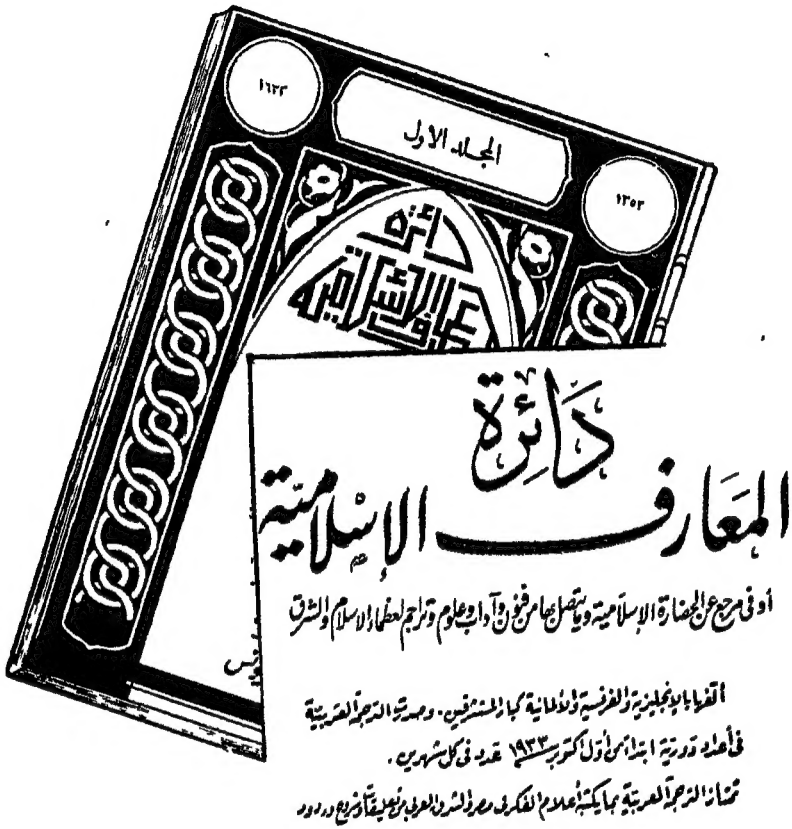 ١٦٣٣
المجلد الأول
١٣٥٢
دائرة
المعارف الإسلامية
دَائِرَة
المَعَارف الإسْلاميَّة
أوفى مرجع عن الحضارة الإسلامية وما يتصل بها من فنون وآداب وعلوم وتراجم لعظماء الإسلام والشرق
ألفها بالإنجليزية والفرنسية والألمانية كبار المستشرقين . وصدرت الترجمة العربية
فى أعداد دورية ابتداء من أول أكتوبر سنة ١٩٣٣ عدد فى كل شهرين .
تمتاز الترجمة العربية بما يكتبه أعلام الفكر فى مصر والشرق العربى من تعليقات وشروح وردود